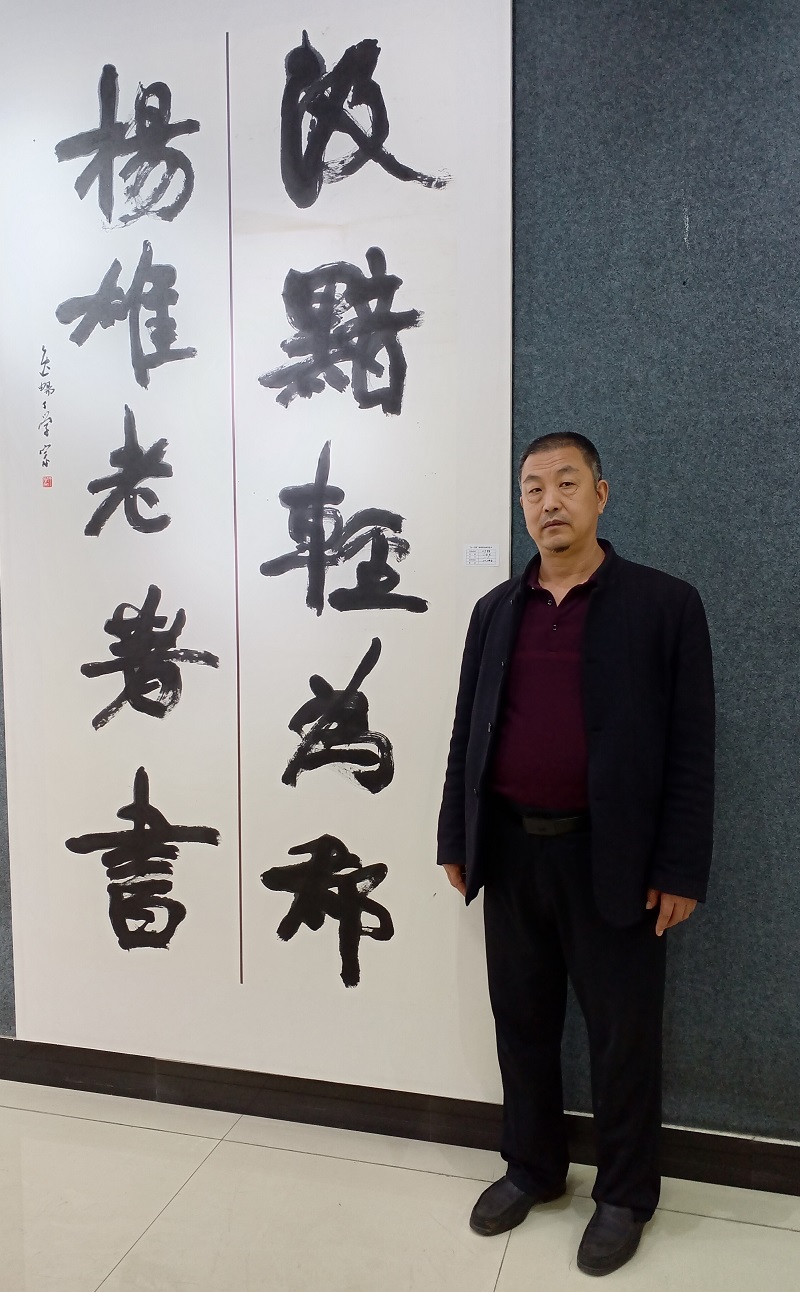 汲黯輕為郡
楊雄老著書